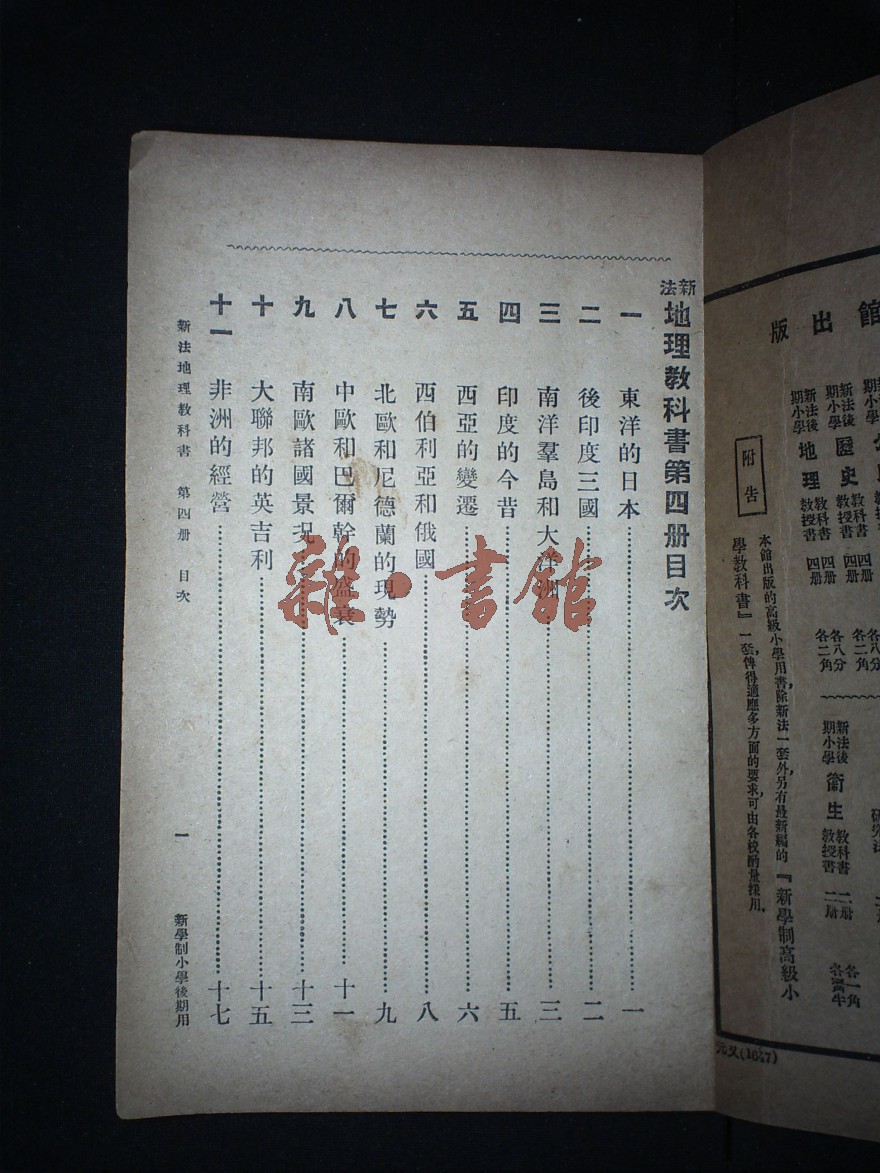 館出版
新法後期小學 歷史 教科書 四册 各八分 教授書 四册 各二角
新法後期小學 地理 教科書 四册 各八分 教授書 四册 各二角
新法後期小學 衞生 教科書 二册 各一角 教授書 二册
附告
本館出版的高級小學用書，除新法一套外，另有最新編的『新學制高級小
學教科書』一套，俾得適應多方面的要求，可由各校酌量採用。
新法地理教科書第四册目次
一 東洋的日本 一
二 後印度三國 二
三 南洋羣島和大洋洲 三
四 印度的今昔 五
五 西亞的變遷 六
六 西伯利亞和俄國 八
七 北歐和尼德蘭的現勢 九
八 中歐和巴爾幹的盛衰 十一
九 南歐諸國景況 十三
十 大聯邦的英吉利 十五
十一 非洲的經營 十七
新法地理教科書 第四册 目次 一 新學制小學後期用
雜·書館